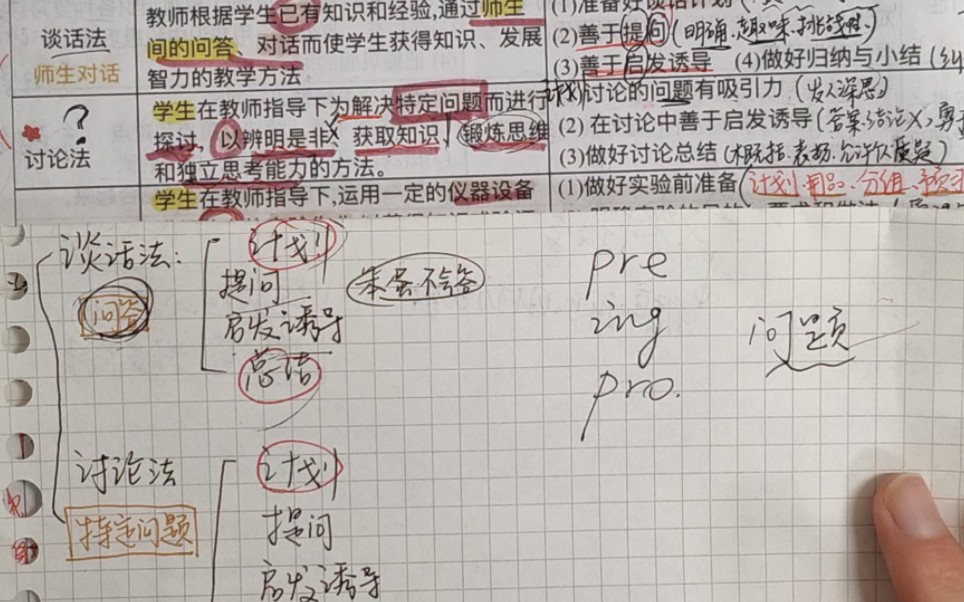 谈话法
师生对话
教师根据学生已有知识和经验,通过师生
间的问答、对话而使学生获得知识、发展
智力的教学方法
(1)准备好谈话计划
(2)善于提问(明确、趣味、挑战性)
(3)善于启发诱导 (4)做好归纳与小结
?
讨论法
学生在教师指导下为解决特定问题而进行
探讨,以辨明是非、获取知识,锻炼思维
和独立思考能力的方法。
计划讨论的问题有吸引力(发人深思)
(2) 在讨论中善于启发诱导(答案、结论×,
(3)做好讨论总结(概括、表扬、允许质疑)
学生在教师指导下,运用一定的仪器设备
(1)做好实验前准备(计划、用品、分组、
谈话法:
问答
计划
提问
启发诱导
总结
笨蛋不会答
pre
ing
pro.
问题
讨论法
特定问题
计划
提问
启发诱导